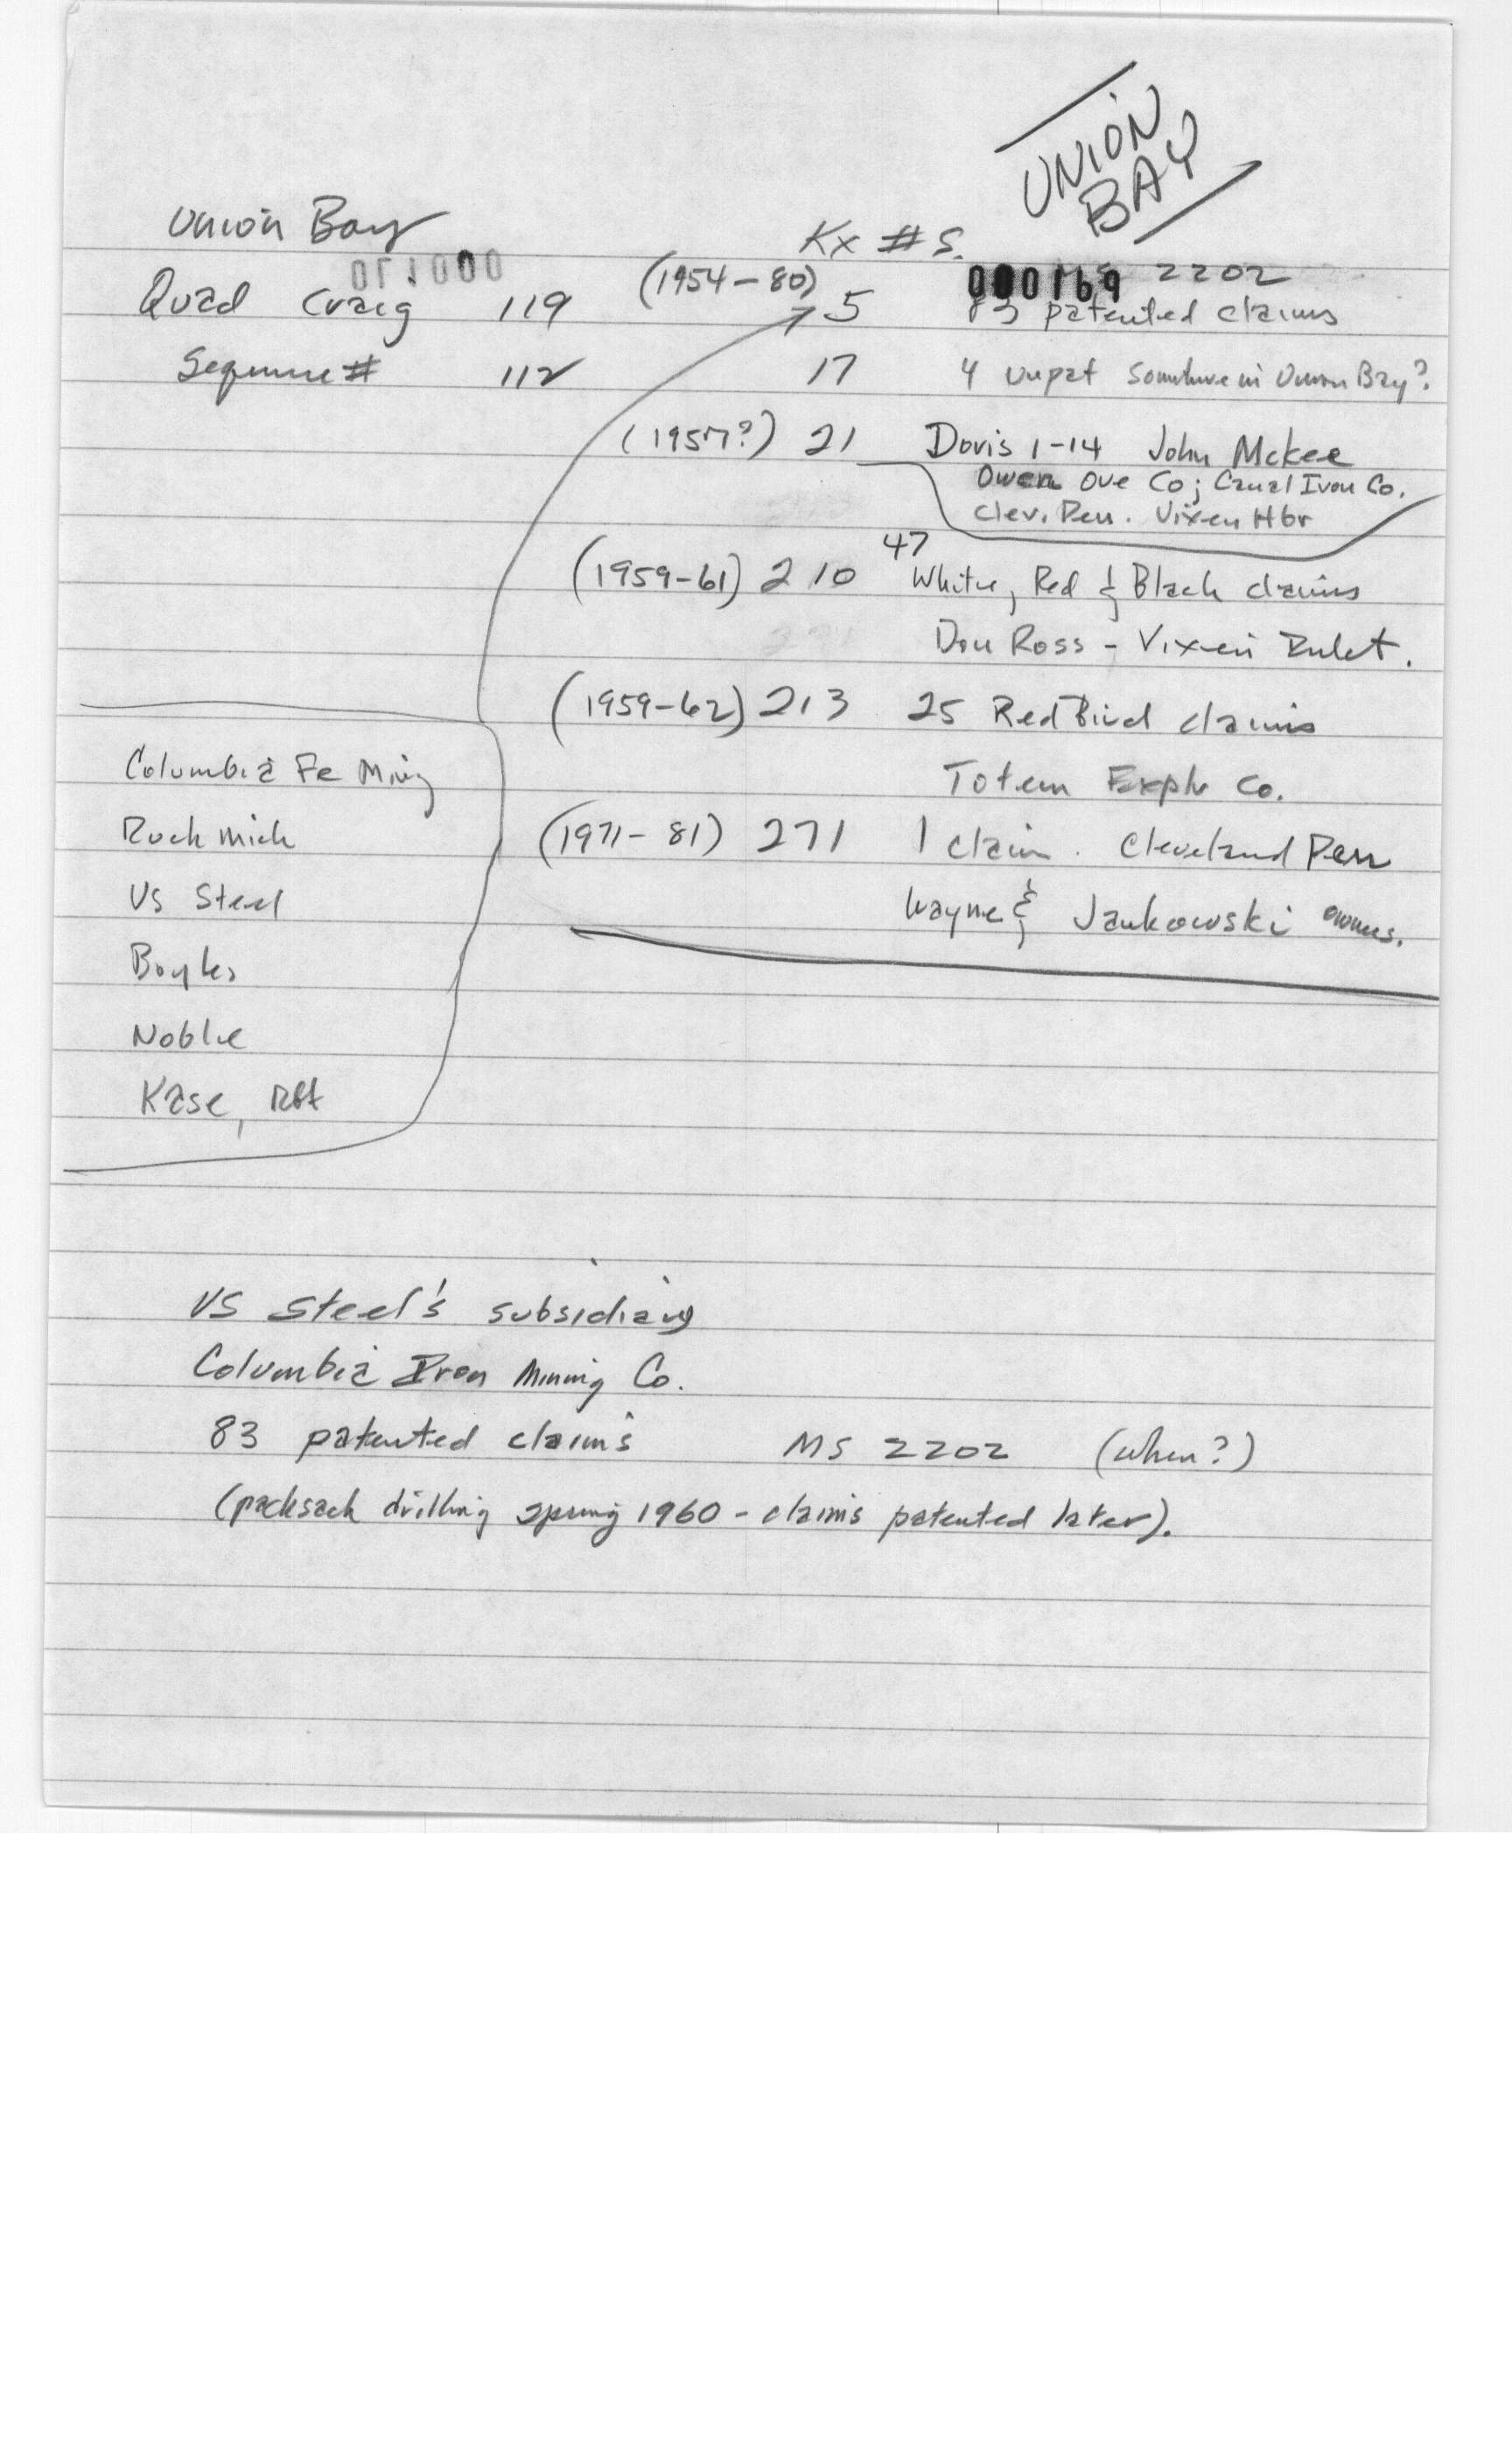 UNION
BAY
Union Bay
Kx #S.
000169
MS 2202
Quad Craig 119 (1954-80) 5 83 patented claims
Sequence # 112 17 4 unpat somewhere in Union Bay?
(1957?) 21 Doris 1-14 John McKee
Owen Ore Co; Canal Iron Co.
Clev. Pen. Vixen Hbr
(1959-61) 210 47 White, Red & Black claims
Don Ross - Vixen Inlet.
(1959-62) 213 25 Red Bird claims
Columbia Fe Ming
Totem Explr Co.
(1971-81) 271 1 claim. Cleveland Pen
US Steel
Wayne & Jankowski owners.
Boyles
Noble
Kase, Rbt
US Steel's subsidiary
Columbia Iron Mining Co.
83 patented claims MS 2202 (when?)
(packsack drilling spring 1960 - claims patented later).